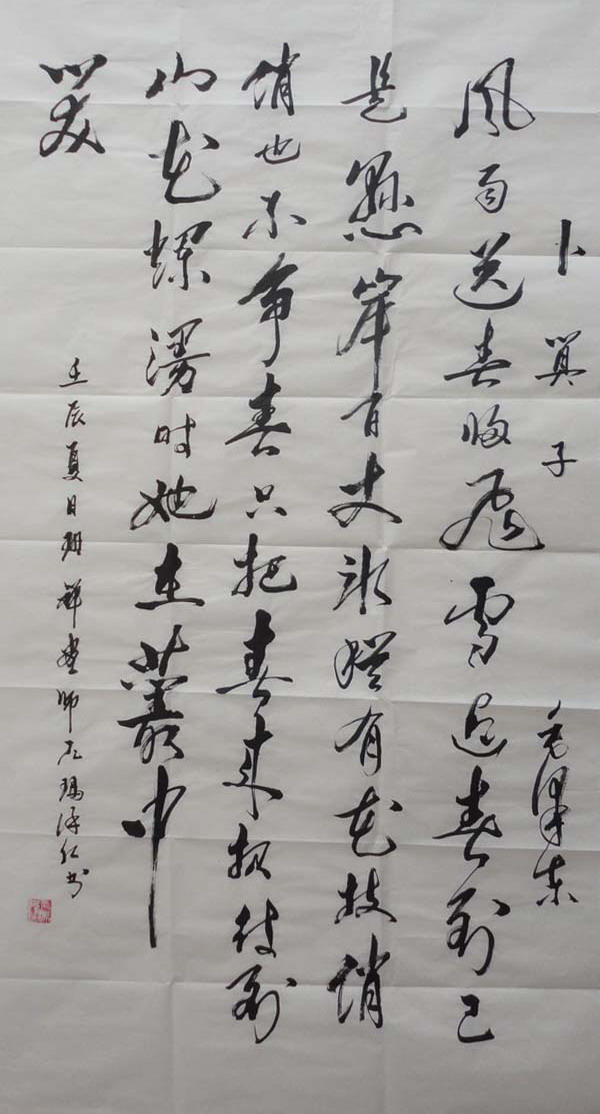 卜算子 毛泽东
风雨送春归飞雪迎春到已
是懸岸百丈冰犹有花枝俏
俏也不争春只把春来报待到
山花爛漫时她在叢中
笑
壬辰夏日 书